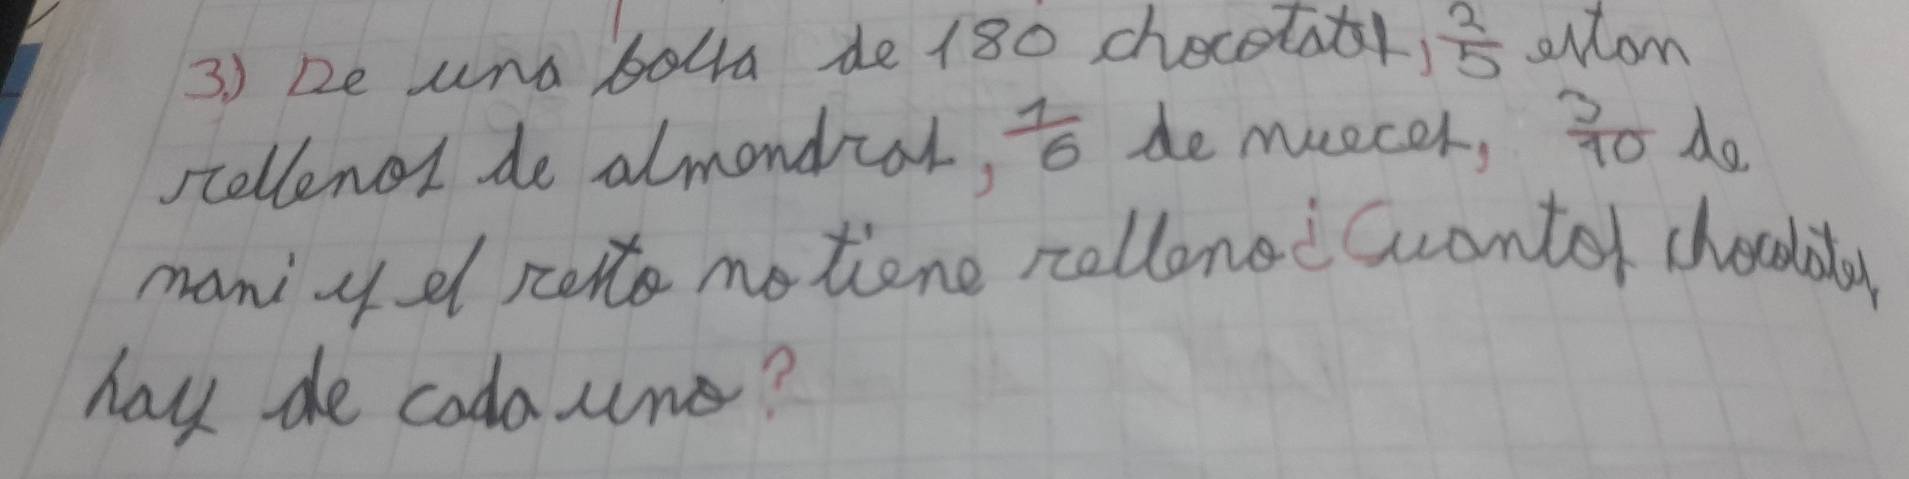 3.) De una bolsa de 180 chocolates, 2/5 estan
rellenos de almendras, 1/6 de nueces, 3/10 de
mani y el resto no tiene relleno ¿Cuantos chocolates
hay de cada uno?